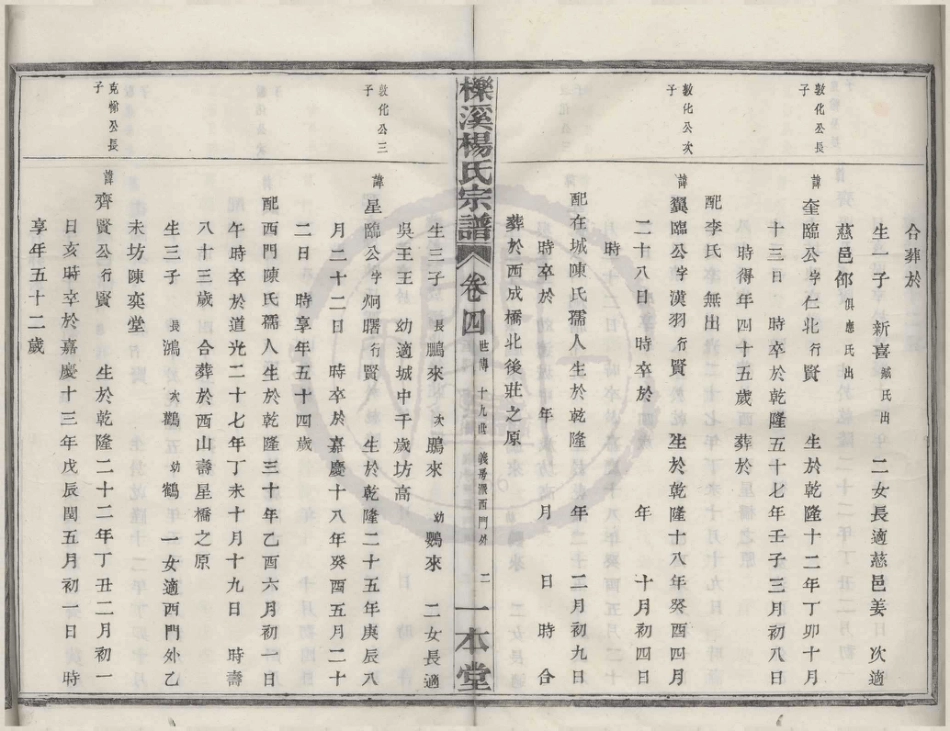 合葬於
生一子 新喜 繇氏出 二女長適慈邑姜 次適
慈邑邵 俱應氏出
敦化公長子
諱奎臨公字仁北行賢 生於乾隆十二年丁卯十月
十三日 時卒於乾隆五十七年壬子三月初八日
時得年四十五歲 葬於
配李氏 無出
敦化公次子
諱翼臨公字漢羽行賢 生於乾隆十八年癸酉四月
二十八日 時卒於 年 十月初四日
時
配在城陳氏孺人生於乾隆 年 二月初九日
時卒於 年 月 日 時 合
葬於西成橋北後莊之原
櫟溪楊氏宗譜 卷四 世傳 十九世 義房派西門外 二 一本堂
生三子 長鵬來 次鵾來 幼鸚來 二女長適
吳王王 幼適城中千歲坊高
敦化公三子
諱星臨公字炯曙行賢 生於乾隆二十五年庚辰八
月二十二日 時卒於嘉慶十八年癸酉五月二十
二日 時享年五十四歲
配西門陳氏孺人生於乾隆三十年乙酉六月初一日
午時卒於道光二十七年丁未十月十九日 時壽
八十三歲 合葬於西山壽星橋之原
生三子 長鴻 次鸛 幼鶴 一女適西門外乙
未坊陳奕堂
克悌公長子
諱齊賢公行賢 生於乾隆二十二年丁丑二月初一
日亥時卒於嘉慶十三年戊辰閏五月初一日 時
享年五十二歲